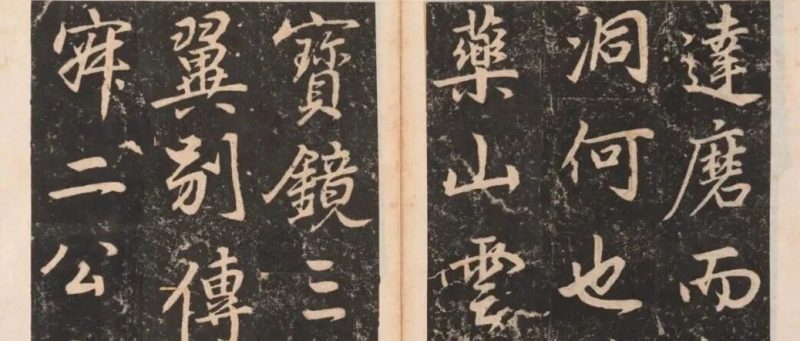 達磨而
洞何也
藥山雲
寶鏡三
翼別傳
二公